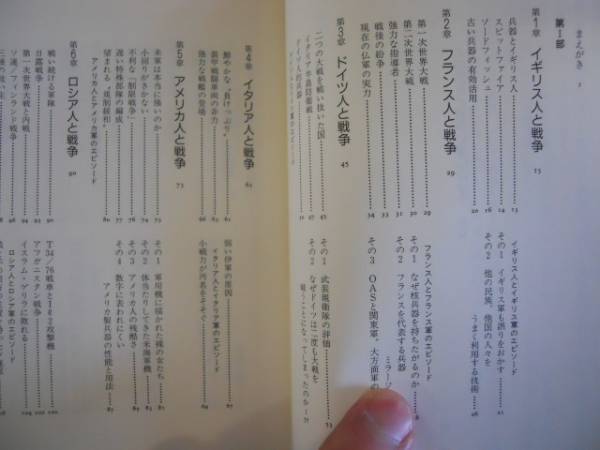 まえがき 3
第Ⅰ部
第1章 イギリス人と戦争 13
兵器とイギリス人 13
スピットファイア 14
ソードフィッシュ 16
古い兵器の有効活用 20
イギリス人とイギリス軍のエピソード
その1 イギリス軍も誤りをおかす 21
その2 他の民族、他国の人々を
うまく利用する技術 26
第2章 フランス人と戦争 29
第一次世界大戦 29
第二次世界大戦 30
強力な指導者 31
戦後の紛争 33
現在の仏軍の実力 34
フランス人とフランス軍のエピソード
その1 なぜ核兵器を持ちたがるのか
その2 フランスを代表する兵器
ミラージ
その3 OASと関東軍、大方面軍の
第3章 ドイツ人と戦争 45
二つの大戦を戦い抜いた国 45
イタリア半島防衛戦
ドイツ人的兵器 51
その1 武装親衛隊の評価
その2 なぜドイツは二度も大戦を
戦うことになってしまったのか 53
第4章 イタリア人と戦争 61
鮮やかな“負けっぷり” 61
装甲戦闘車両の非力 62
強力な戦艦の登場 66
弱い伊軍の原因
イタリア人とイタリア軍のエピソード
小戦力が汚名をそそぐ
第5章 アメリカ人と戦争 73
米軍は本当に強いのか 73
小回りがきかない 74
不利な「制限戦争」 76
遅い特殊部隊の編成
望まれる“規制緩和” 80
アメリカ人とアメリカ軍のエピソード
その1 軍用機に描かれた裸の女たち
その2 体当たりしてきた米海軍機
その3 アメリカ人の残酷さ 85
その4 数字に表われにくい
アメリカ製兵器の性能と用法 87
第6章 ロシア人と戦争 90
戦い続ける軍隊
日露戦争
第一次世界大戦と内戦
ソ連／フィンランド戦争
T34／76戦車とIℓ2攻撃機
アフガニスタン戦争
イスラム・ゲリラに敗れる 102
ロシア人とロシア軍のエピソード